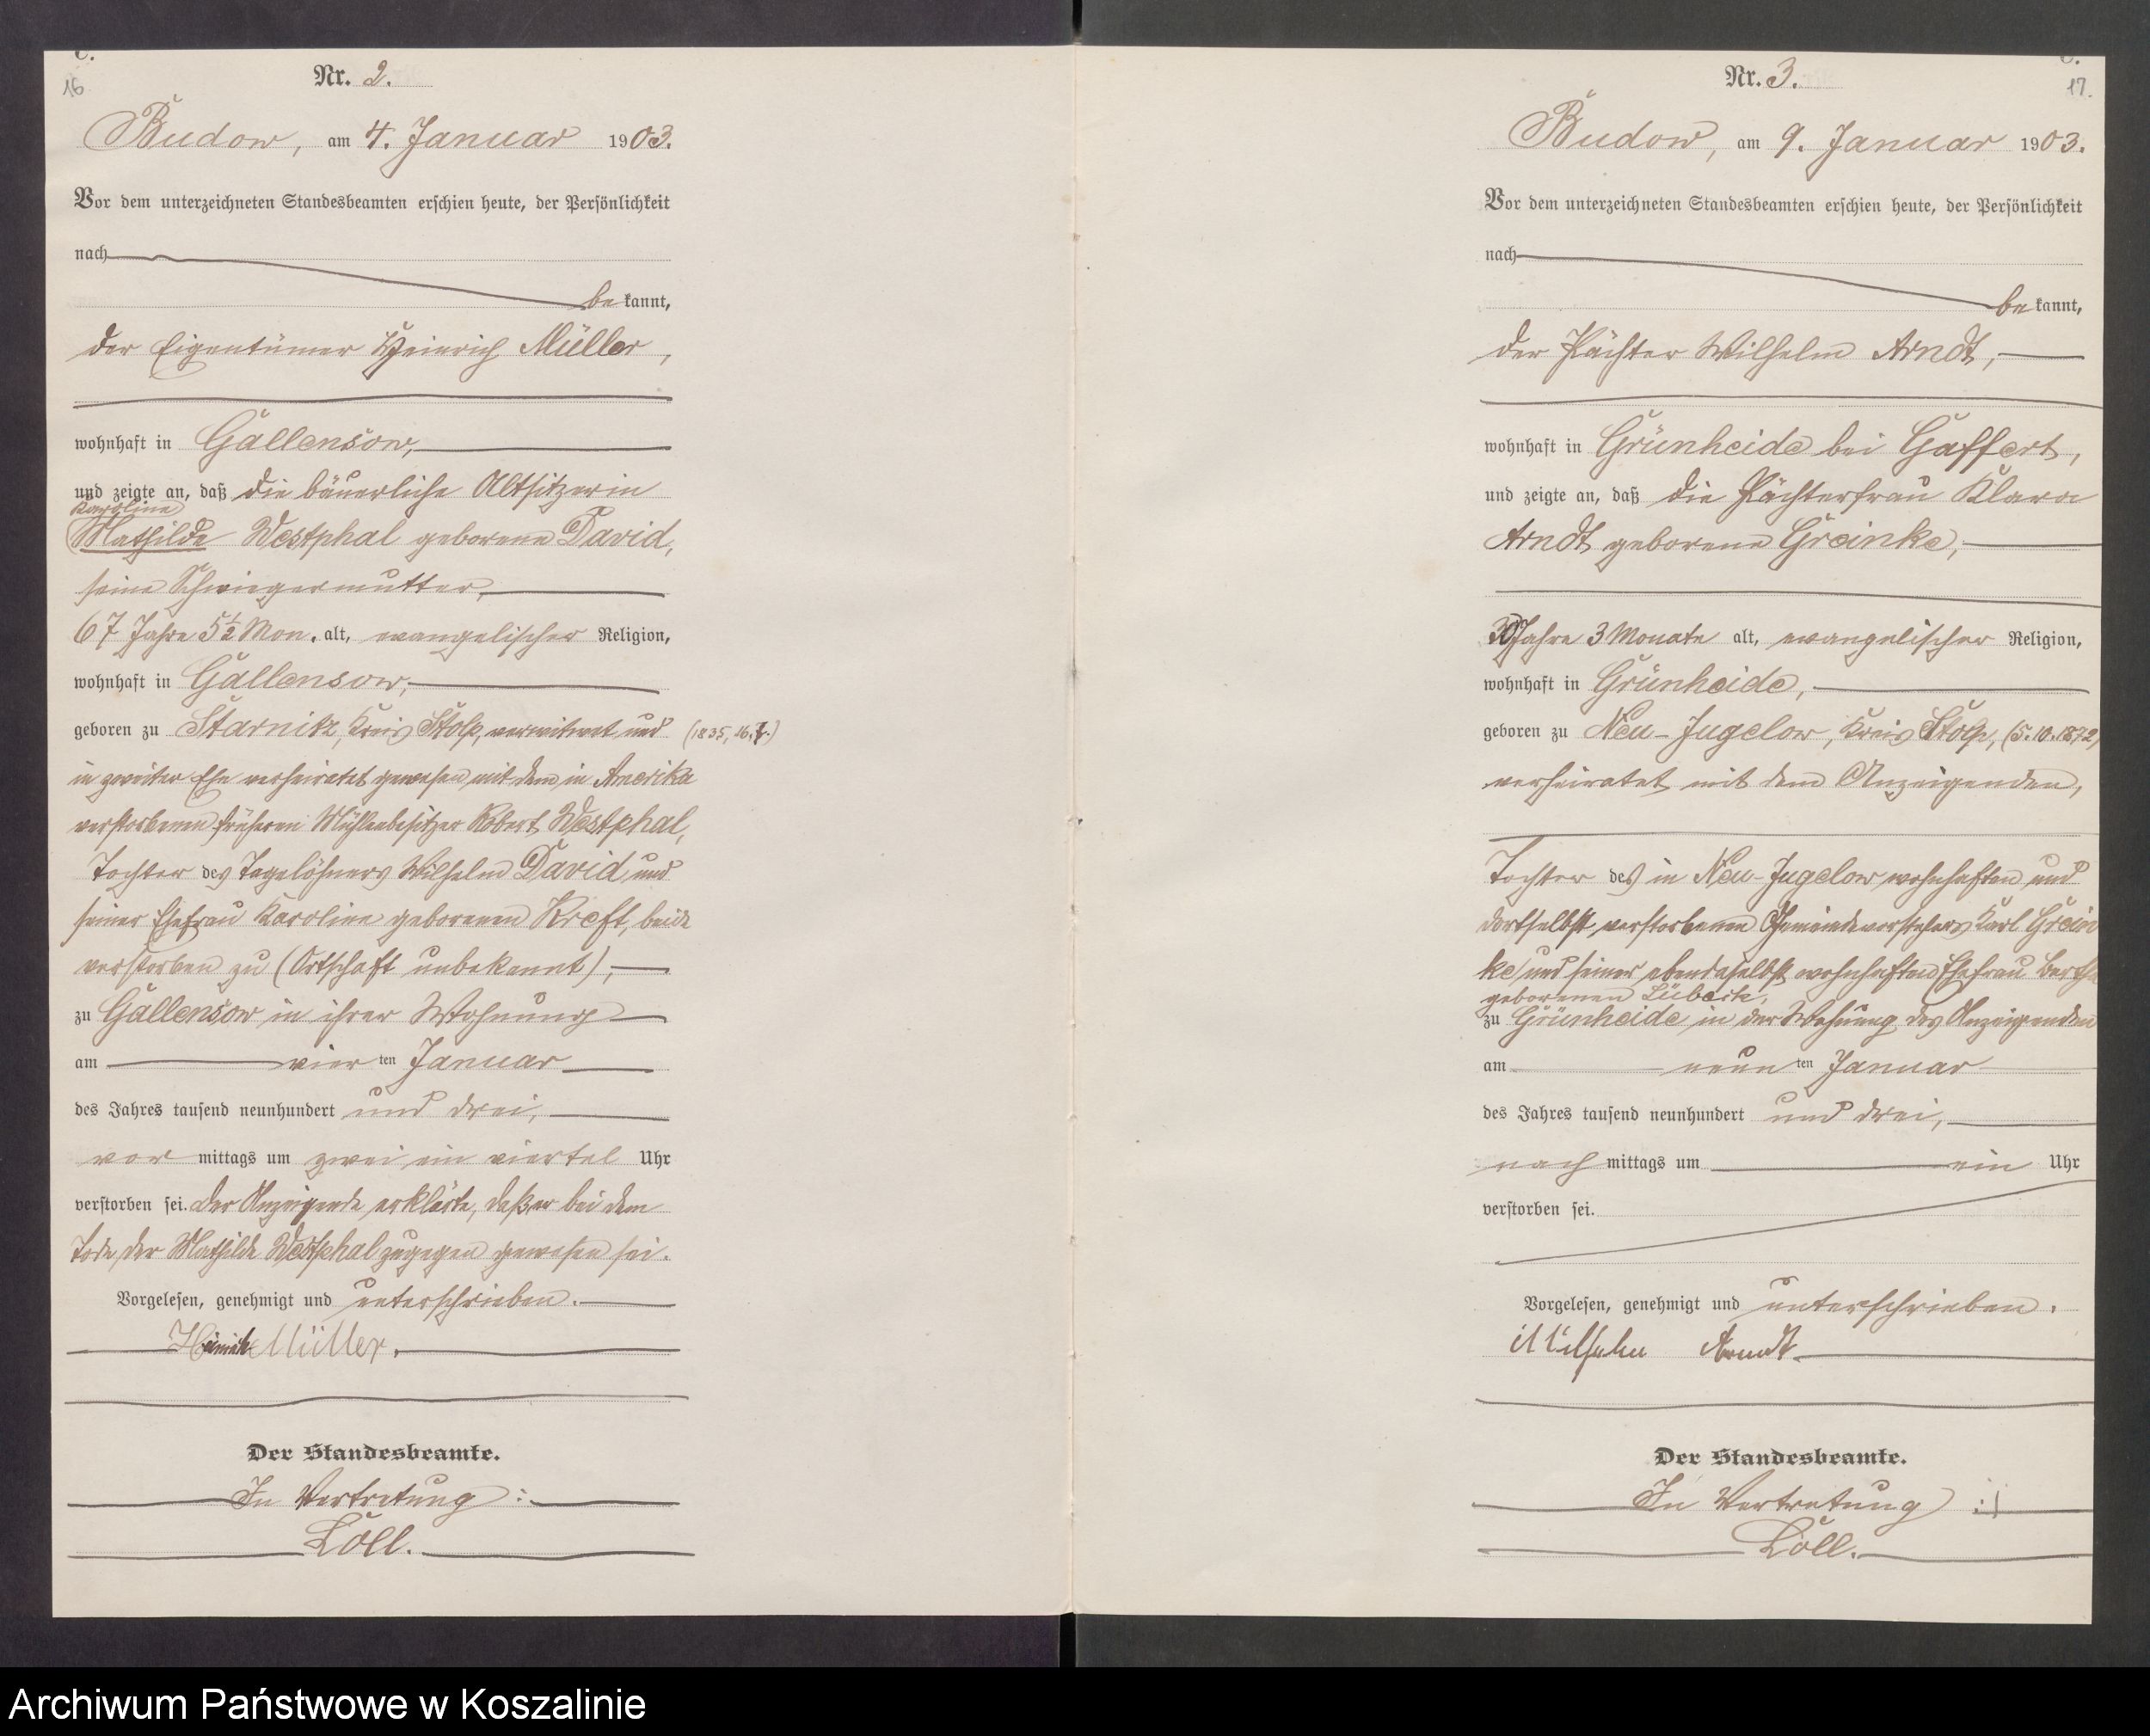 C.
16
Nr. 2.
Budow, am 4. Januar 1903.
Vor dem unterzeichneten Standesbeamten erschien heute, der Persönlichkeit
nach
be kannt,
der Eigentümer Heinrich Müller,
wohnhaft in Gallensow,
und zeigte an, daß die bäuerliche Altsitzerin
Karoline
(Mathilde Westphal geborene David,
seine Schwiegermutter,
67 Jahre 5½ Mon. alt, evangelischer Religion,
wohnhaft in Gallensow,
geboren zu Starnitz, Kreis Stolp, verwitwet und (1835, 16.7.)
in zweiter Ehe verheiratet gewesen mit dem in Amerika
verstorbenen früheren Mühlenbesitzer Robert Westphal,
Tochter des Tagelöhners Wilhelm David und
seiner Ehefrau Karoline geborenen Kreft, beide
verstorben zu (Ortschaft unbekannt),
zu Gallensow in ihrer Wohnung
am vier ten Januar
des Jahres tausend neunhundert und drei,
vor mittags um zwei ein viertel Uhr
verstorben sei. Der Anzeigende erklärte, daß er bei dem
Tode der Mathilde Westphal zugegen gewesen sei.
Vorgelesen, genehmigt und unterschrieben.
Heinrich Müller.
Der Standesbeamte.
In Vertretung:
Löll.
C.
17.
Nr. 3.
Budow, am 9. Januar 1903.
Vor dem unterzeichneten Standesbeamten erschien heute, der Persönlichkeit
nach
be kannt,
der Pächter Wilhelm Arndt,
wohnhaft in Grünheide bei Gaffert,
und zeigte an, daß die Pächterfrau Klara
Arndt geborene Greinke,
30 Jahre 3 Monate alt, evangelischer Religion,
wohnhaft in Grünheide,
geboren zu Neu-Jugelow, Kreis Stolp, (5.10.1872)
verheiratet mit dem Anzeigenden,
Tochter des in Neu-Jugelow wohnhaften und
dortselbst verstorbenen Gemeindevorstehers Karl Grein
ke und seiner ebendaselbst wohnhaften Ehefrau Bertha
geborenen Lübeck,
zu Grünheide in der Wohnung des Anzeigenden
am neun ten Januar
des Jahres tausend neunhundert und drei,
nach mittags um ein Uhr
verstorben sei.
Vorgelesen, genehmigt und unterschrieben.
Wilhelm Arndt
Der Standesbeamte.
In Vertretung:
Löll.
Archiwum Państwowe w Koszalinie